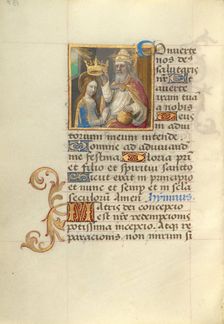 Converte
nos de
salutaris
et averte
iram tuā
a nobis
Deus
in adiu
torium meum intende
Domine ad adiuvand
me festina Gloria pri
et filio et spiritui sancto
Sicut erat in principio
et nunc et semp et in secla
seculorū Amen hymnus
Matris dei concepcio
est nre redempcionis
potissima incepcio Atq̄ re
paracionis non mirum si